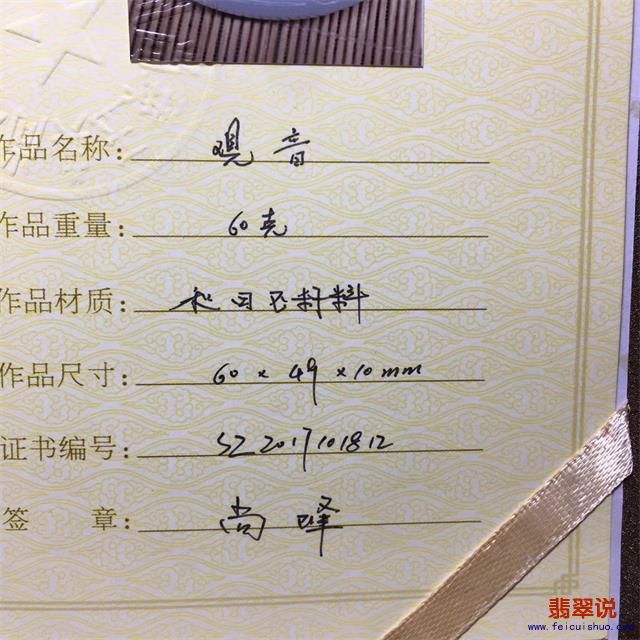 作品名称: 观音
作品重量: 60克
作品材质: 和田玉籽料
作品尺寸: 60×49×10mm
证书编号: SZ2017101812
签 章: 尚峰
翡翠说
www.feicuishuo.com